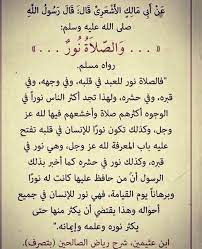 عَنْ أَبِي مَالِكٍ الْأَشْعَرِيِّ قَالَ: قَالَ رَسُولُ اللَّهِ
صلى الله عليه وسلم:
« ... وَالصَّلَاةُ نُورٌ ... »
رواه مسلم.
"فالصلاة نور للعبد في قلبه، وفي وجهه، وفي
قبره، وفي حشره، ولهذا تجد أكثر الناس نوراً في
الوجوه أكثرهم صلاة وأخشعهم فيها لله عز
وجل، وكذلك تكون نورًا للإنسان في قلبه تفتح
عليه باب المعرفة لله عز وجل، وهي نور في
قبره، وكذلك نور في حشره كما أخبر بذلك
الرسول أنّ من حافظ عليها كانت له نورًا
وبرهانًا يوم القيامة، فهي نور للإنسان في جميع
أحواله وهذا يقتضي أن يكثر منها حتى
يكثر نوره وعلمه وإيمانه."
ابن عثيمين، شرح رياض الصالحين (بتصرف).